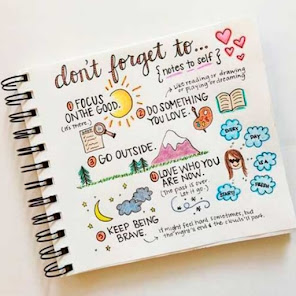 don't forget to...
{notes to self}
Like reading or drawing
or playing or dreaming
① FOCUS
ON THE GOOD.
(It's there.)
② DO SOMETHING
YOU LOVE.
③ GO OUTSIDE.
EVERY
DAY
IS A
FRESH
START
④ LOVE WHO YOU
ARE NOW.
(The past is over
let it go.)
⑤ KEEP BEING
BRAVE.
It might feel hard sometimes, but
the night's end & the clouds'll part.